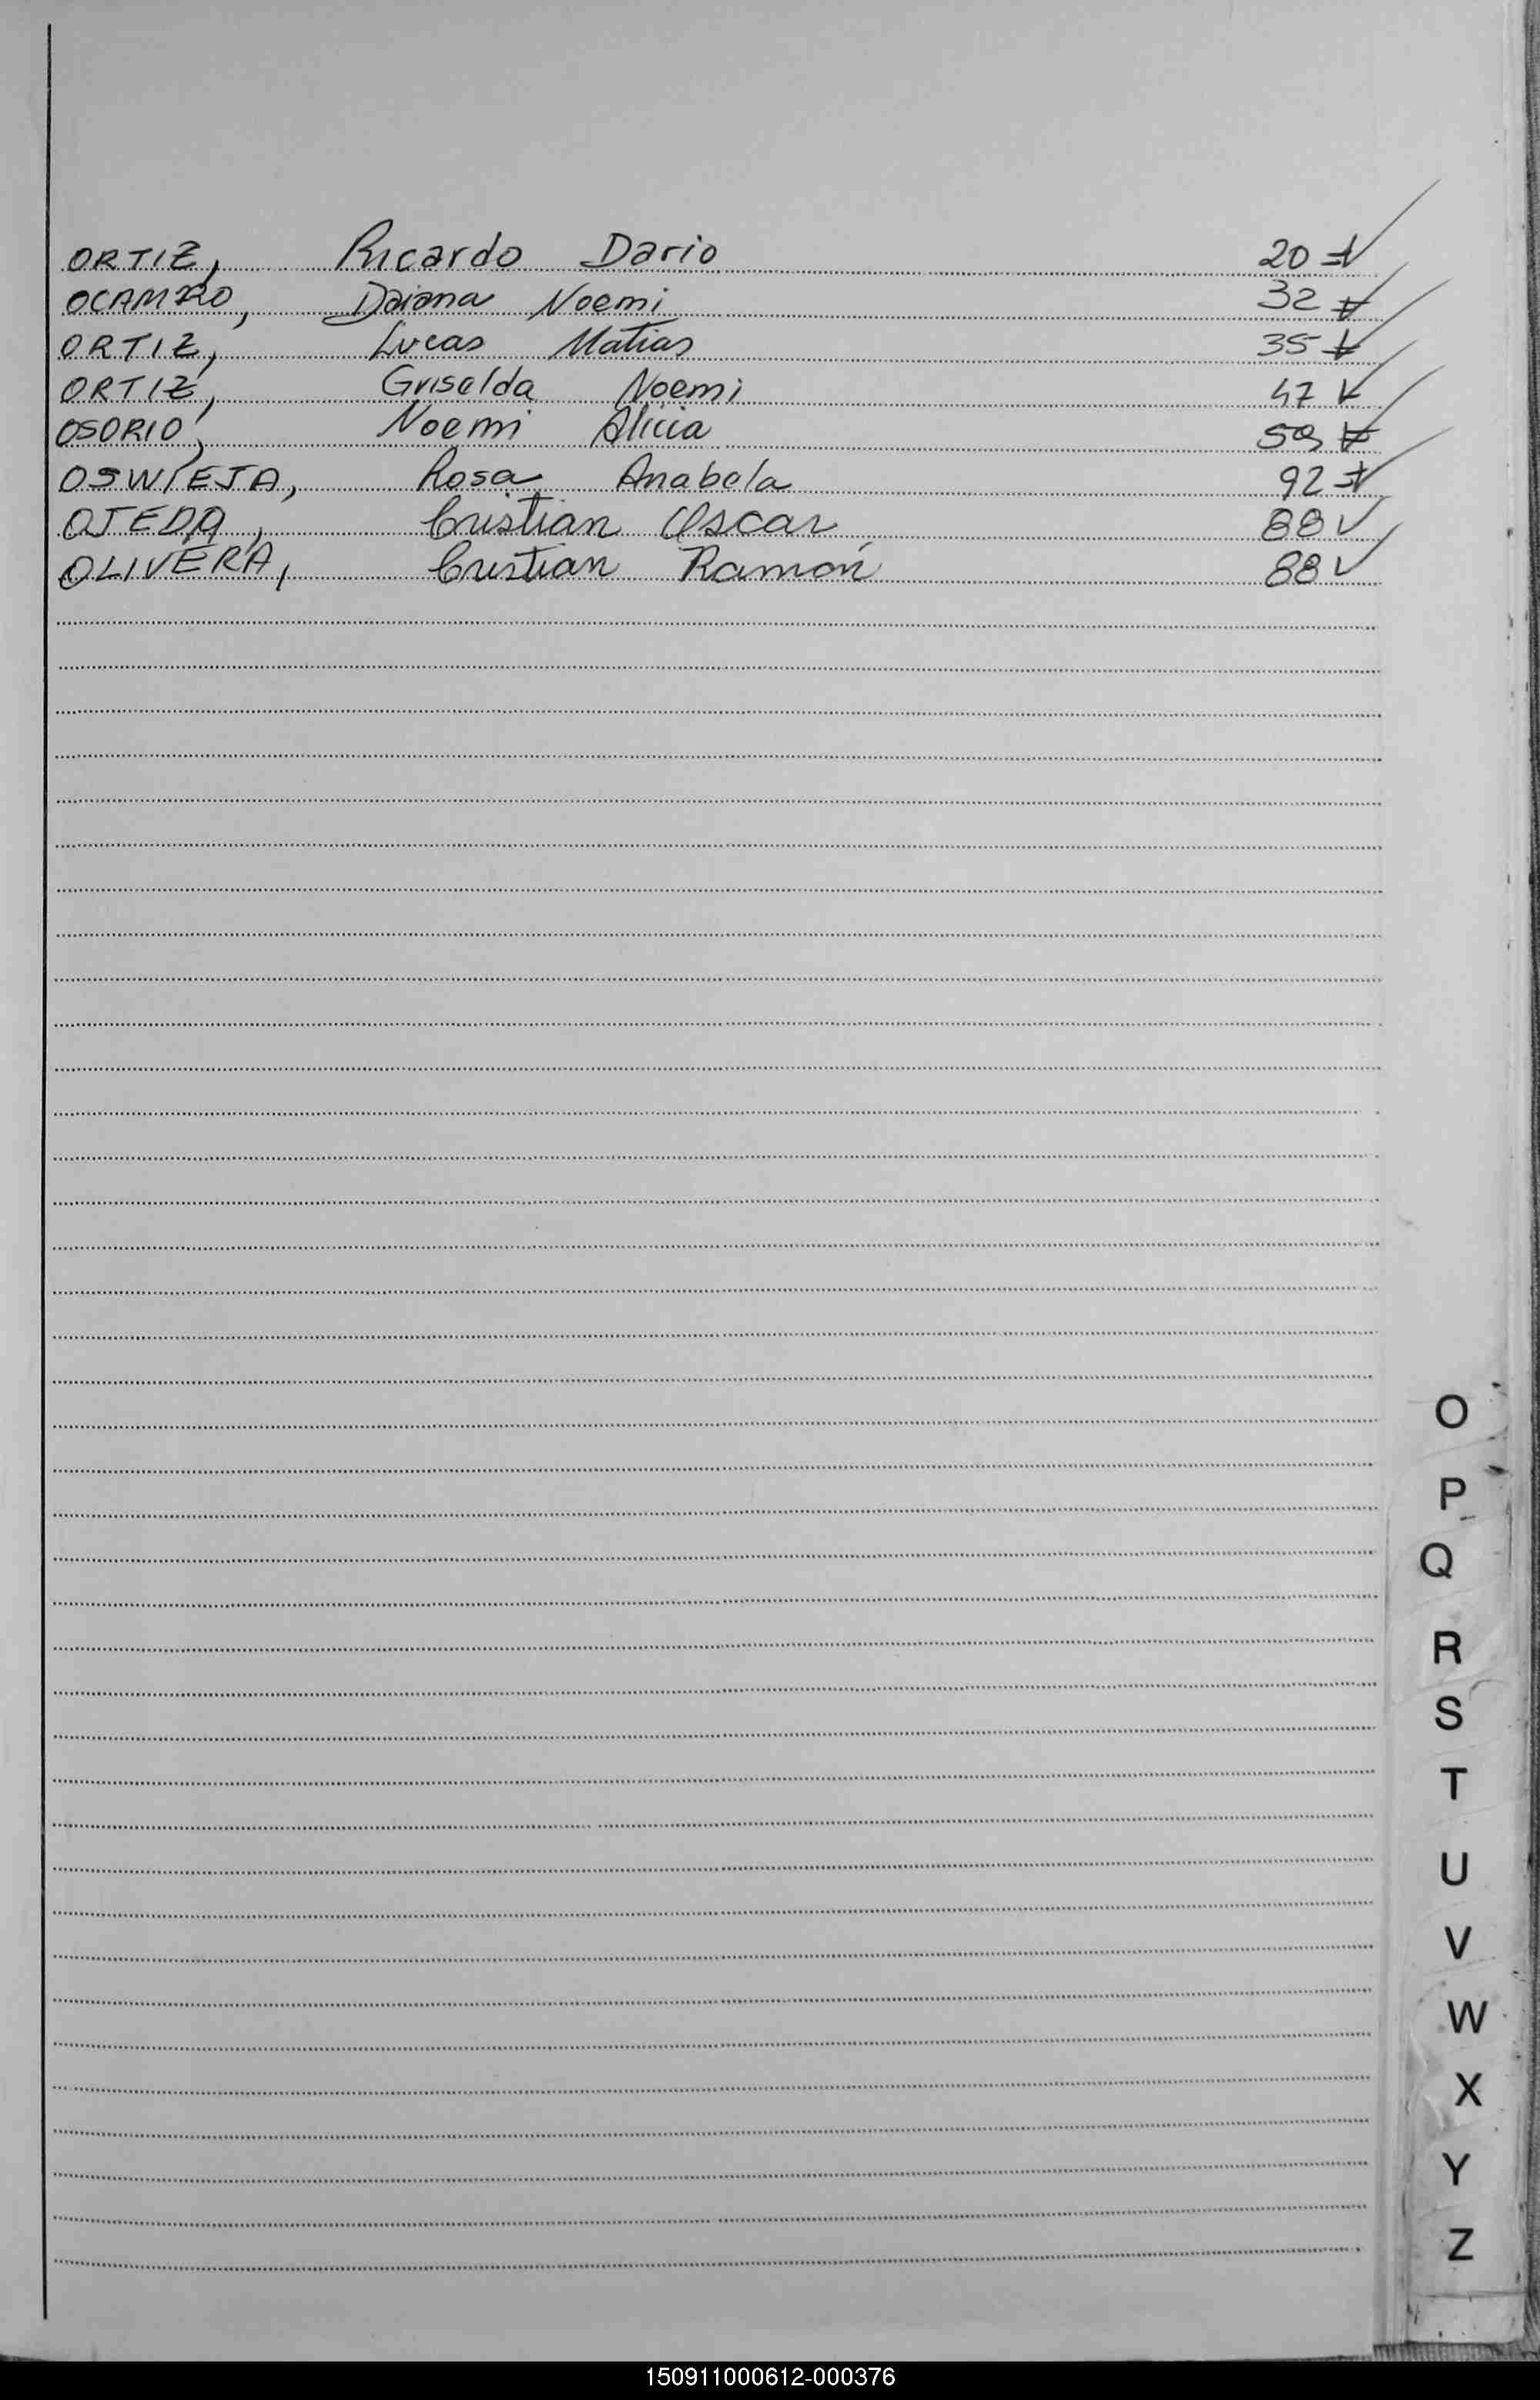 ORTIZ, Ricardo Dario 20
OCAMPO, Daiana Noemi 32
ORTIZ, Lucas Matias 35
ORTIZ, Griselda Noemi 47
OSORIO, Noemi Alicia 59
OSWIEJA, Rosa Anabela 92
OJEDA, Cristian Oscar 88
OLIVERA, Cristian Ramón 88
O
P
Q
R
S
T
U
V
W
X
Y
Z
150911000612-000376